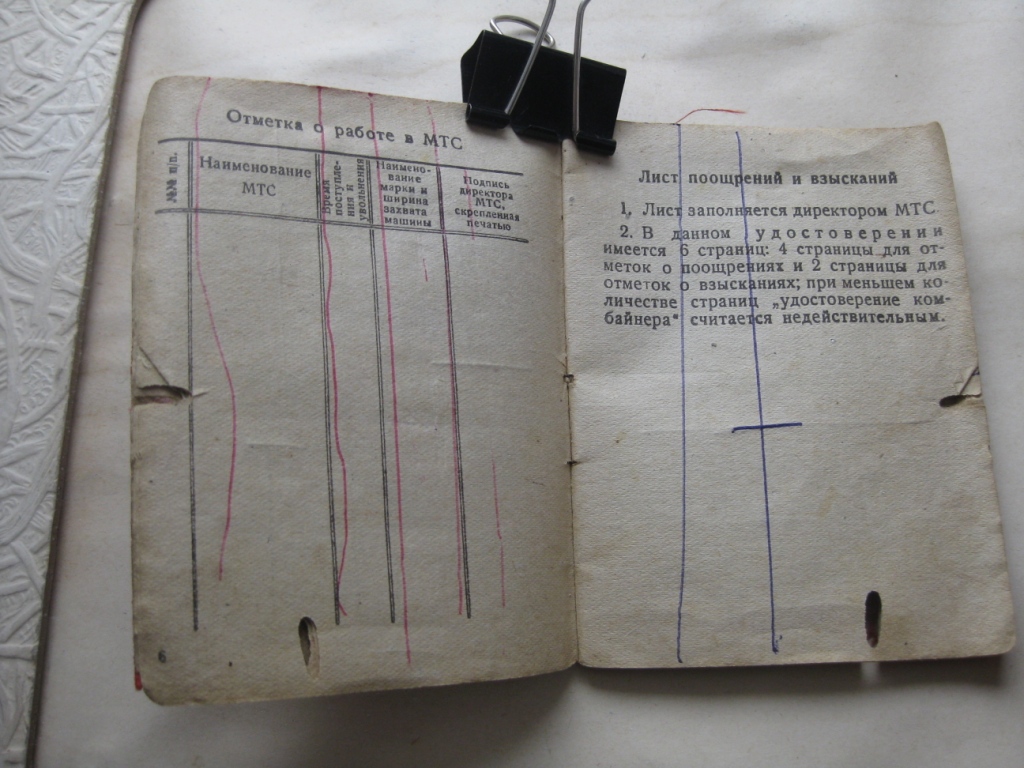 Отметка о работе в МТС
№№ п/п.
Наименование
МТС
Время
поступле-
ния и
увольнения
Наимено-
вание
марки и
ширина
захвата
машины
Подпись
директора
МТС,
скрепленная
печатью
6
Лист поощрений и взысканий
1. Лист заполняется директором МТС.
2. В данном удостоверении
имеется 6 страниц: 4 страницы для от-
меток о поощрениях и 2 страницы для
отметок о взысканиях; при меньшем ко-
личестве страниц „удостоверение ком-
байнера“ считается недействительным.